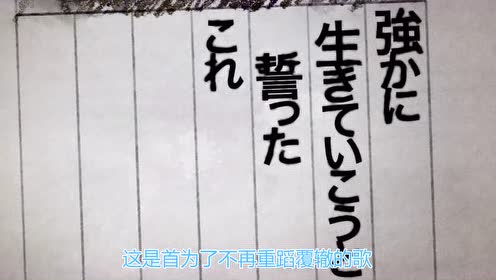 強かに
生きていこうと
誓った
これ
这是首为了不再重蹈覆辙的歌